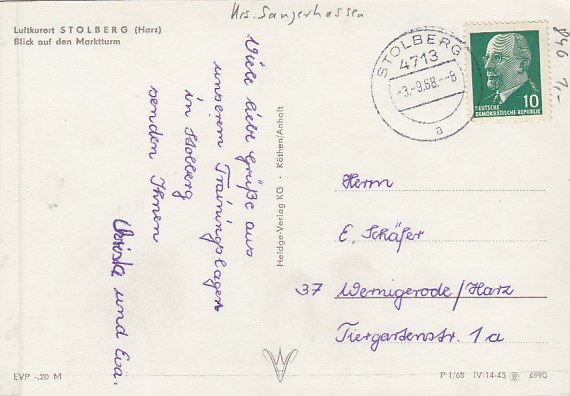 Krs. Sangerhausen
Luftkurort STOLBERG (Harz)
Blick auf den Marktturm
Viele liebe Grüße aus
unserem Trainingslager
in Stolberg
senden Ihnen
und Eva.
Heldge-Verlag KG · Köthen/Anhalt
STOLBERG
4713
-3.-9.68.--8
a
10
DEUTSCHE
DEMOKRATISCHE REPUBLIK
846 1,-
Herrn
E. Schäfer
37 Wernigerode/Harz
Tiergartenstr. 1a
EVP -,20 M
P 1/68 IV-14-45 6990